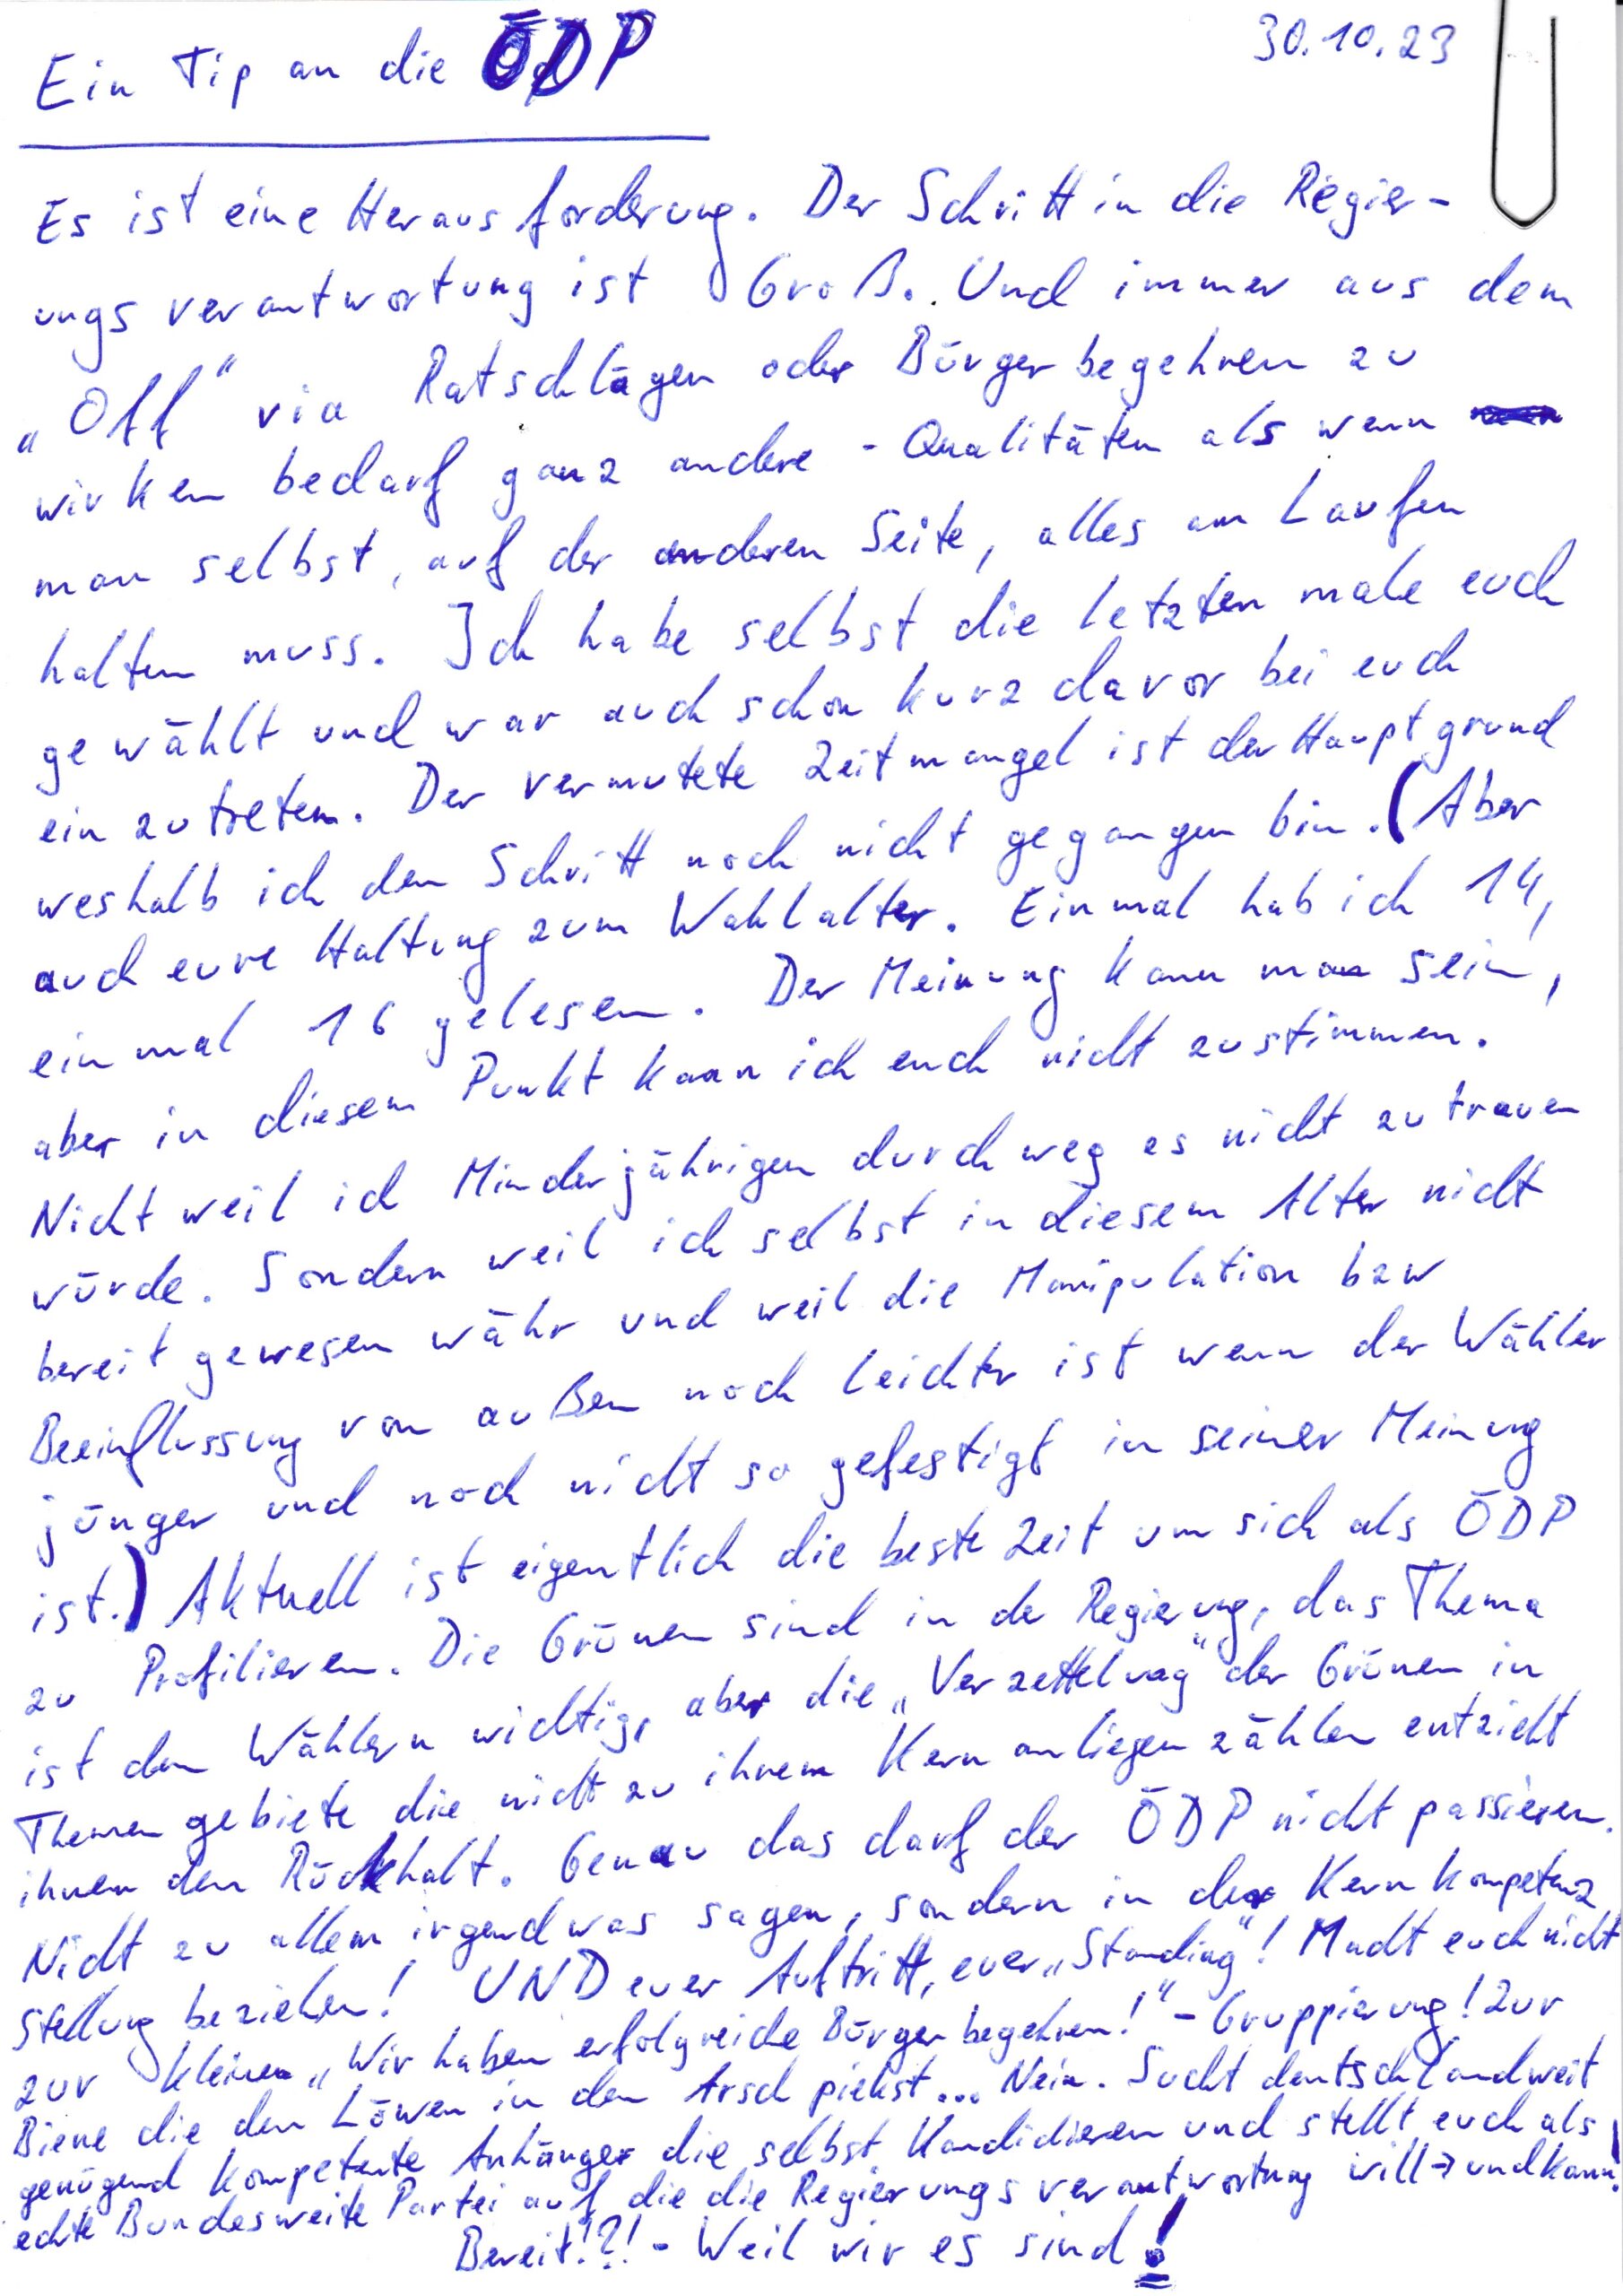 30.10.23
Ein Tip an die ÖDP
Es ist eine Herausforderung. Der Schritt in die Regier-
ungsverantwortung ist Groß. Und immer aus dem
„Off" via Ratschlägen oder Bürgerbegehren zu
wirken bedarf ganz andere - Qualitäten als wenn
man selbst, auf der anderen Seite, alles am Laufen
halten muss. Ich habe selbst die letzten male euch
gewählt und war auch schon kurz davor bei euch
einzutreten. Der vermutete Zeitmangel ist der Hauptgrund
weshalb ich den Schritt noch nicht gegangen bin. (Aber
auch eure Haltung zum Wahlalter. Einmal hab ich 14,
einmal 16 gelesen. Der Meinung kann man sein,
aber in diesem Punkt kann ich euch nicht zustimmen.
Nicht weil ich Minderjährigen durchweg es nicht zutrauen
würde. Sondern weil ich selbst in diesem Alter nicht
bereit gewesen währ und weil die Manipulation bzw
Beeinflussung von außen noch leichter ist wenn der Wähler
jünger und noch nicht so gefestigt in seiner Meinung
ist.) Aktuell ist eigentlich die beste Zeit um sich als ÖDP
zu Profilieren. Die Grünen sind in der Regierung, das Thema
ist den Wählern wichtig, aber die „Verzettelung" der Grünen in
Themengebiete die nicht zu ihrem Kernanliegen zählen entzieht
ihnen den Rückhalt. Genau das darf der ÖDP nicht passieren.
Nicht zu allem irgendwas sagen, sondern in der Kernkompetenz
Stellung beziehen! UND euer Auftritt, euer „Standing"! Macht euch nicht
zur kleinen „Wir haben erfolgreiche Bürgerbegehren!" - Gruppierung! Zur
Biene die den Löwen in den Arsch piekst... Nein. Sucht deutschlandweit
genügend kompetente Anhänger die selbst Kandidieren und stellt euch als
echte Bundesweite Partei auf die die Regierungsverantwortung will → und kann!
Bereit!?! - Weil wir es sind!